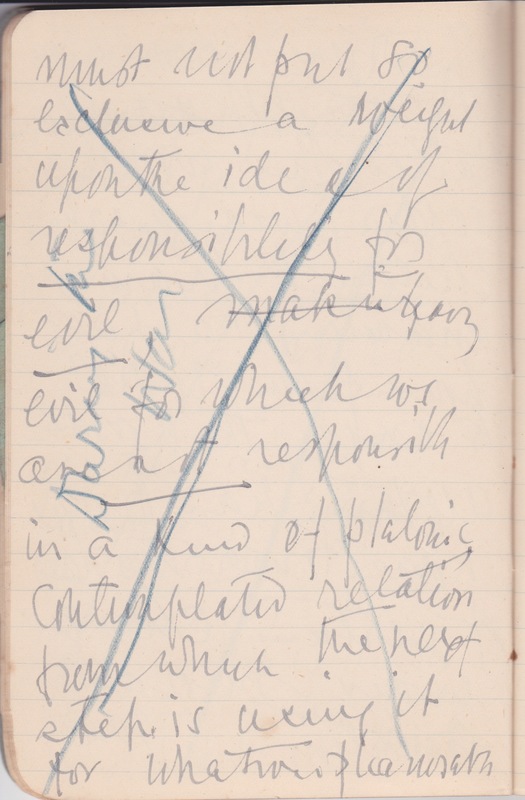 must not put so
exclusive a weight
upon the idea of
responsibility for
evil
evil for which we
are not responsible
in a kind of platonic
contemplated relation
from which the next
step is using it
for whatever